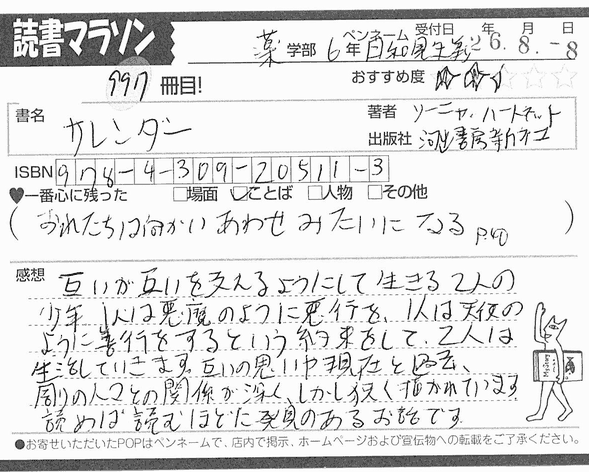 読書マラソン
薬 学部 6年 ペンネーム 日和見主義 受付日 26年8月-8日
997 冊目!
おすすめ度 ★★☆☆☆
書名 サレンダー
著者 ソーニャ・ハートネット
出版社 河出書房新社
ISBN 978-4-309-20511-3
♥一番心に残った □場面 ☑ことば □人物 □その他
(おれたちは向かいあわせみたいになる P.40)
感想 互いが互いを支えるようにして生きる2人の
少年 1人は悪魔のように悪行を、1人は天使の
ように善行をするという約束をして、2人は
生活していきます。互いの思いや現在と過去、
周りの人々との関係が深く、しかし狭く描かれています
読めば読むほどに発見のあるお話です
●お寄せいただいたPOPはペンネームで、店内で掲示、ホームページおよび宣伝物への転載をご了承ください。